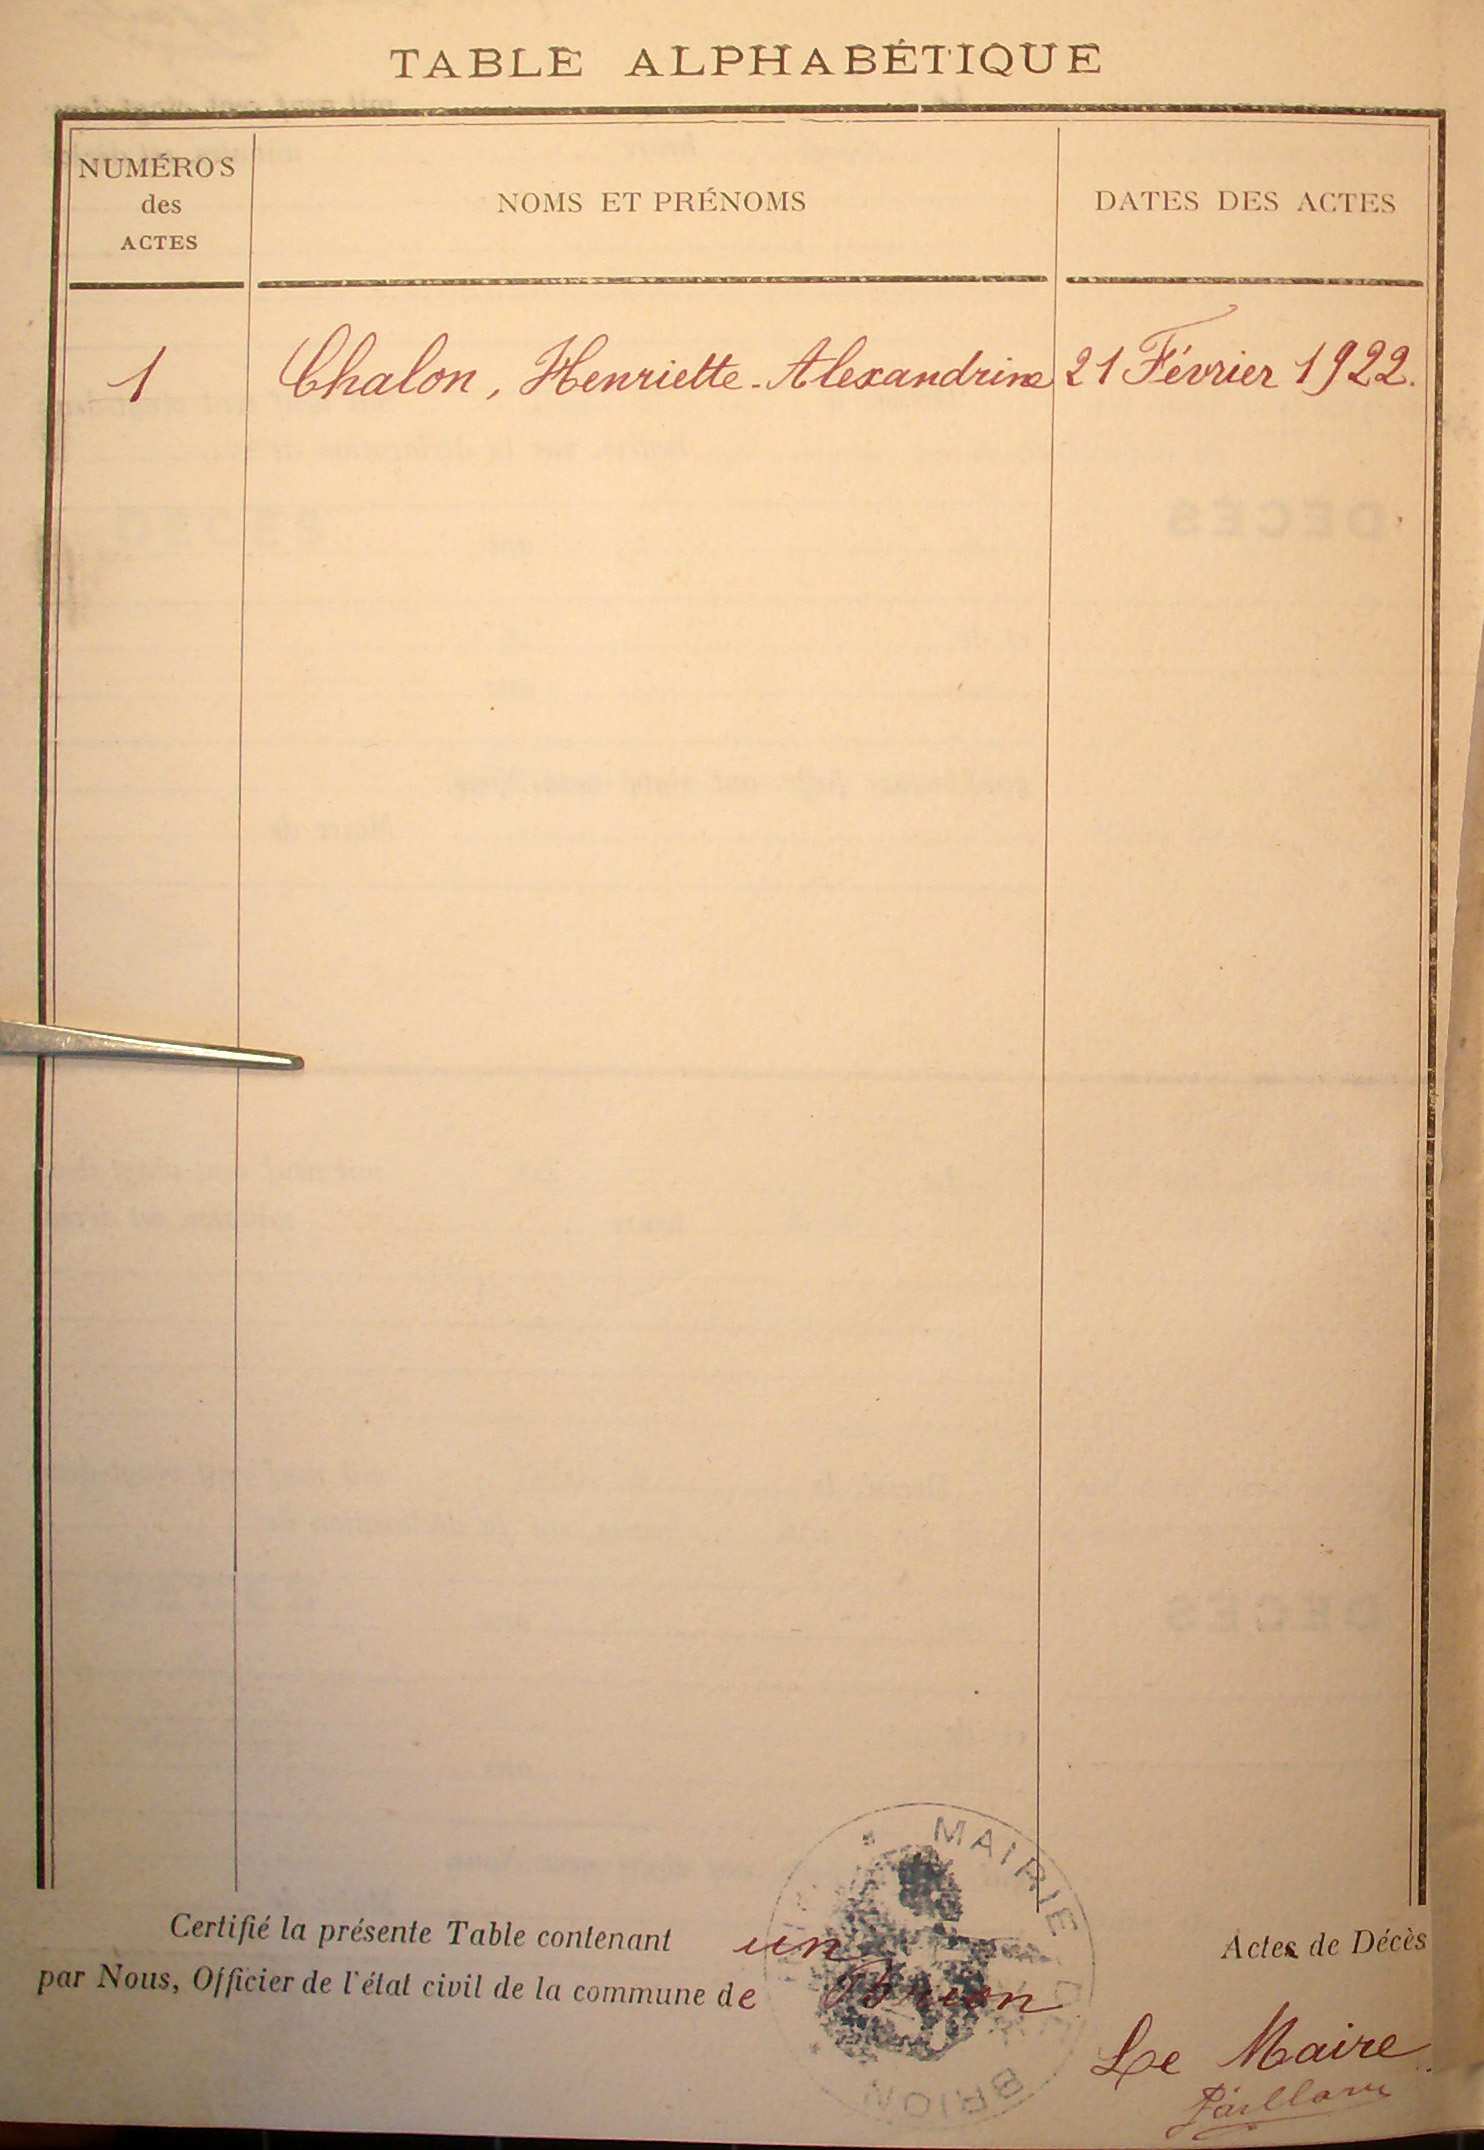 TABLE ALPHABÉTIQUE
NUMÉROS
des
ACTES
NOMS ET PRÉNOMS
DATES DES ACTES
1 Chalon, Henriette-Alexandrine 21 Février 1922.
DÉCÈS
DÉCÈS
MAIRIE DE
BRION
Certifié la présente Table contenant un Actes de Décès
par Nous, Officier de l'état civil de la commune de Brion
Le Maire